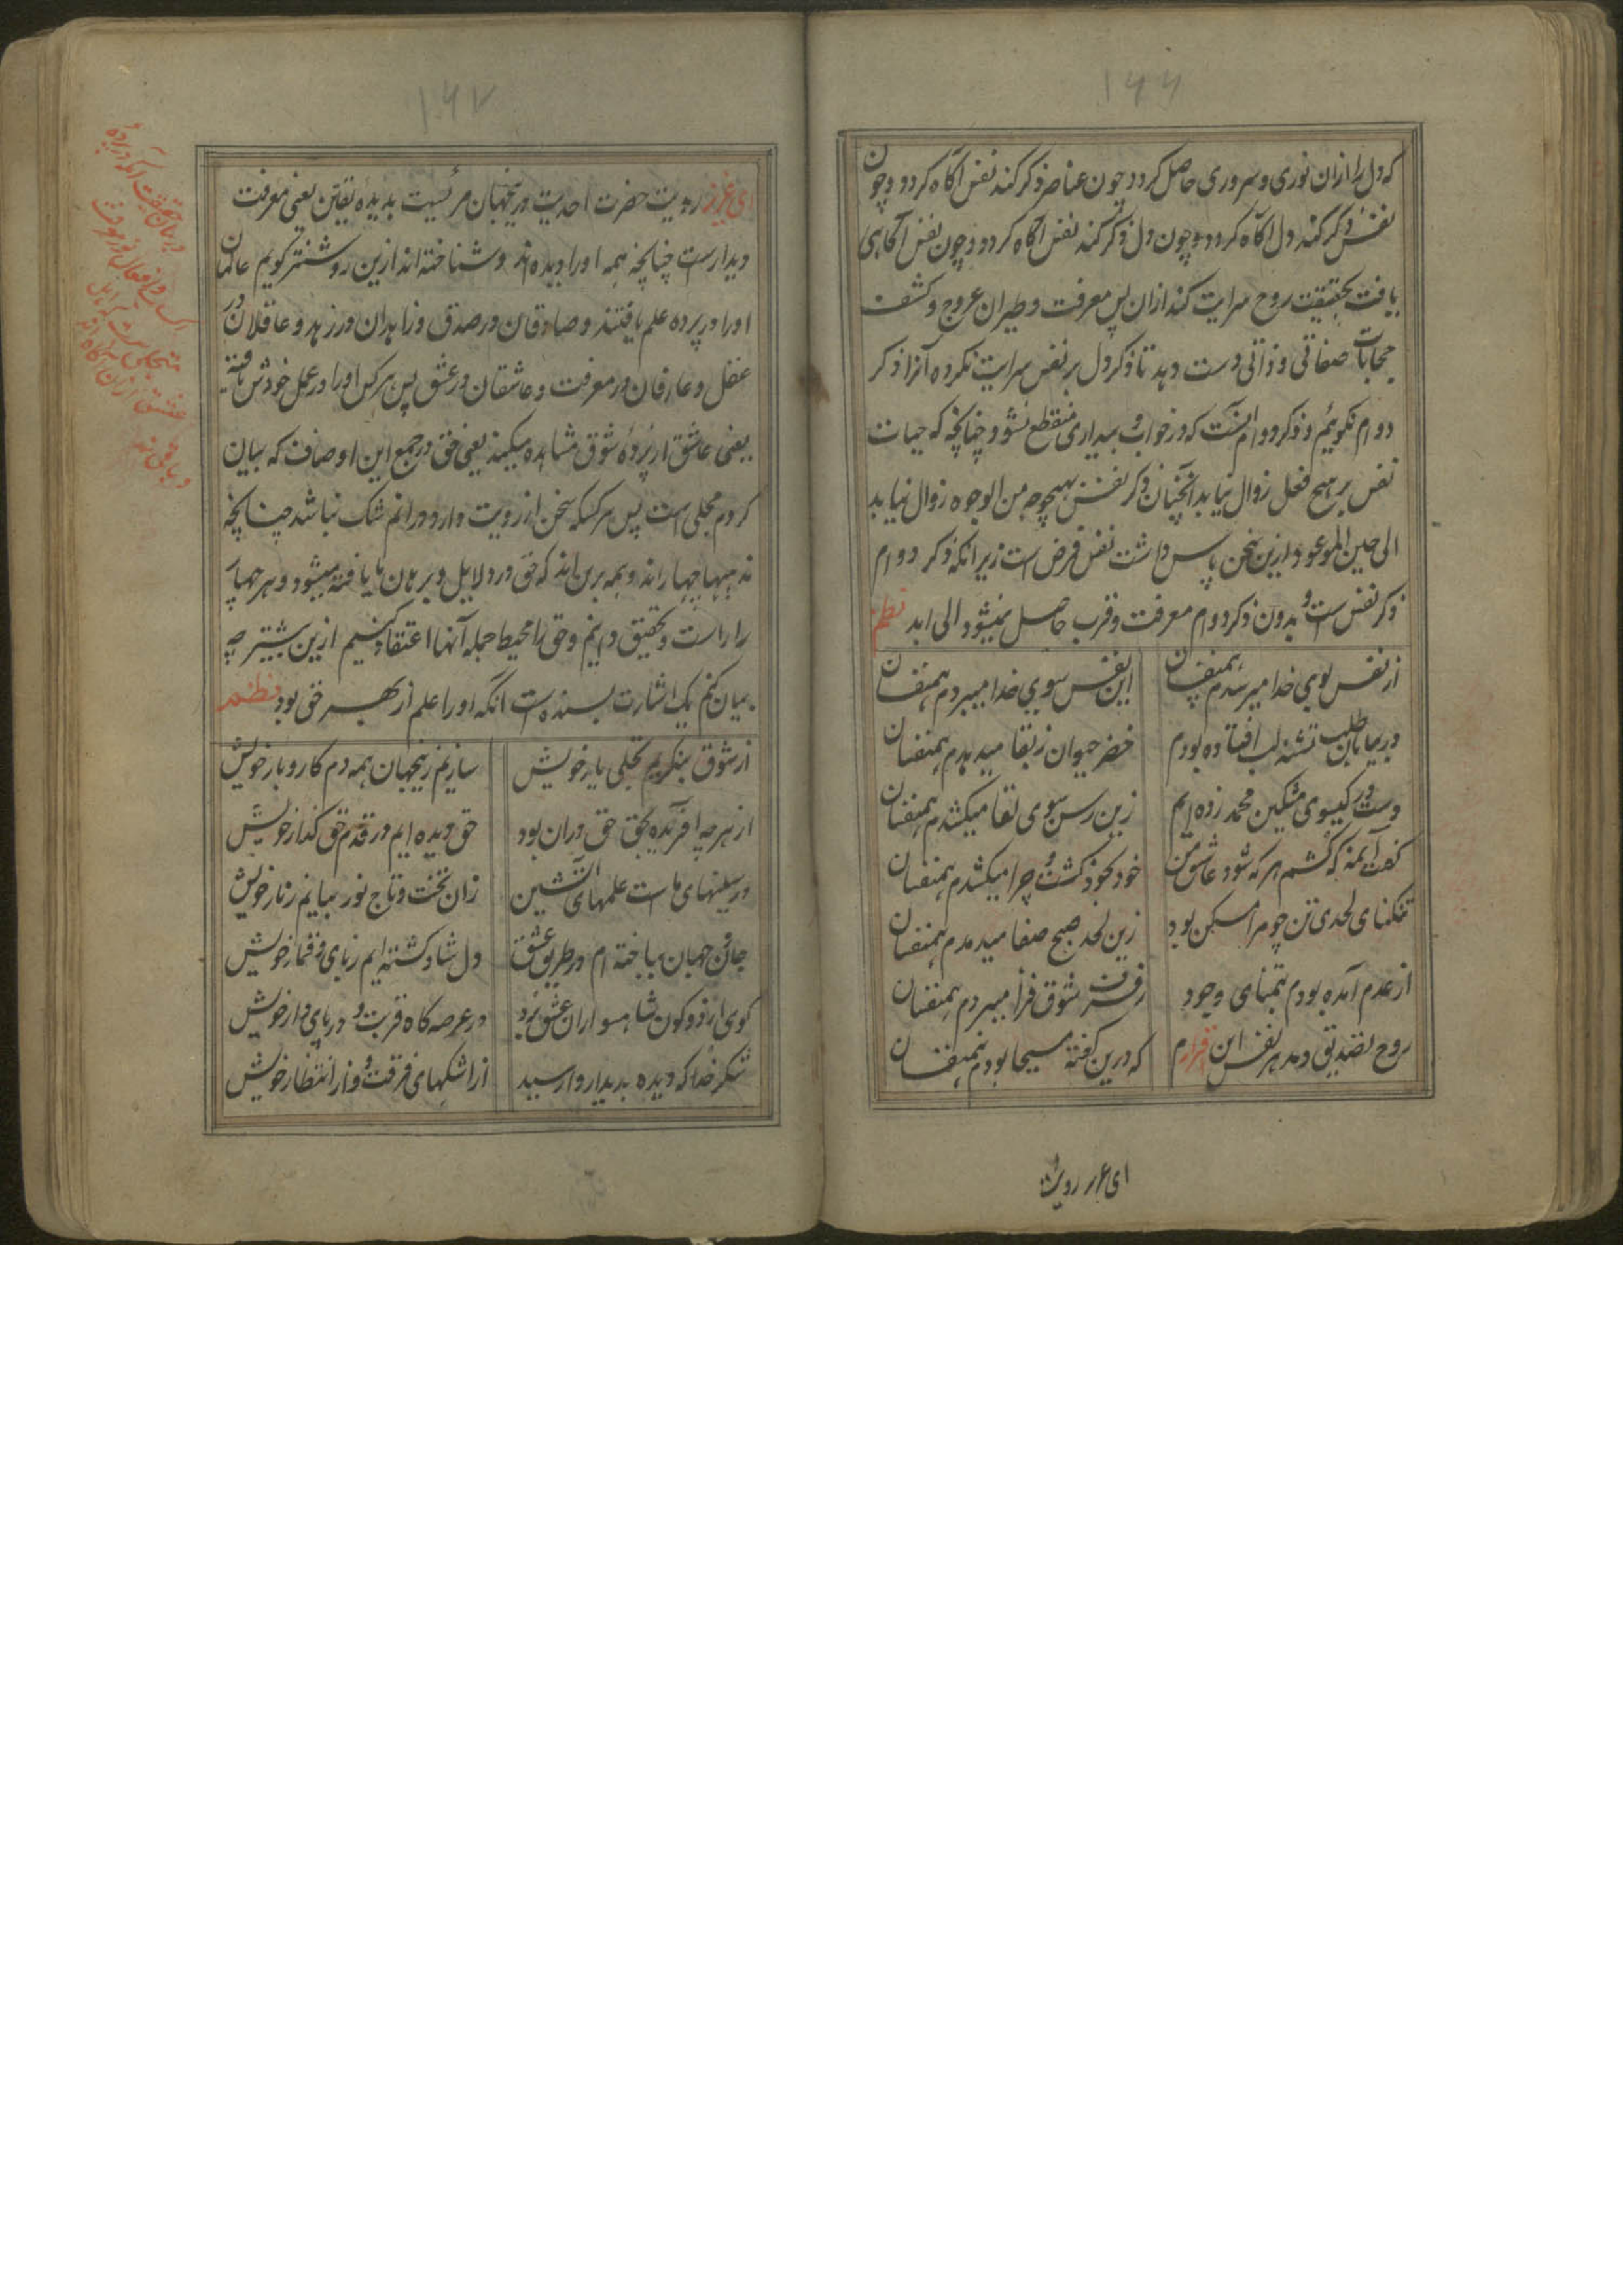 ۱۶۶
که دل را ازان نوری و سروری حاصل کردد چون عناصر ذکر کند نفس آکاه کردد و چون
نفس ذکر کند دل آکاه کردد و چون دل ذکر کند نفس آکاه کردد و چون نفس آکاهی
یافت بحقیقت روح سرایت کند ازان پس معرفت و طیران عروج و کشف
حجابات صفاتی و ذاتی دست دهد تا ذکر دل بر نفس سرایت نکرده آنرا ذکر
دوام نکوئیم و ذکر دوام آنست که در خواب و بیداری منقطع نشود چنانچه که حیات
نفس بر هیچ فعل زوال نیابد آنچنان ذکر نفس بهیچوجه من الوجوه زوال نیابد
الی حین الموعود ازین سخن پاس داشت نفس فرض است زیرا انکه ذکر دوام
ذکر نفس است و بدون ذکر دوام معرفت و قرب حاصل نمیشود الی ابد نظم
از نفس بوی خدا میرسدم همنفسان این نفس سوی خدا میبردم همنفسان
در بیابان طلب تشنه لب افتاده بودم خضر حیوان ز بقا میدهدم همنفسان
دست در کیسوی مشکین محمد زده ایم زین رسن سوی لقا میکشدم همنفسان
کفت آئمنه که کشم هر که شود عاشق من خود بخود کشت و چرا میکشدم همنفسان
تنکنای لحدی تن چو مرا مسکن بود زین لحد صبح صفا میدمدم همنفسان
از عدم آمده بودم بتمنای وجود رفرف شوق فرا میبردم همنفسان
روح تصدیق دمد هر نفس این اقرارم که درین کفته مسیحا بودم همنفسان
ای عزیز رویت
۱۶۷
ای عزیز رویت حضرت احدیت درینجهان مرئیست بدیدهٔ یقین یعنی معرفت
دیدارست چنانچه همه اورا دیده اند و شناخته اند ازین روشنتر کویم عالمان
اورا در پرده علم یافتند و صادقان در صدق و زاهدان در زهد و عاقلان در
عقل و عارفان در معرفت و عاشقان در عشق پس هر کس اورا در عمل خودش یافته
یعنی عاشق از پردهٔ شوق مشاهده میکند یعنی حق در جمع این اوصاف که بیان
کردم مجلی است پس هر کسکه سخن از رویت دارد درانم شک نباشد چنانچه
مذهبها چهار اند و همه برین اند که حق در دلایل و برهان ما یافته میشود و هر چهار
را راست و تحقیق دانیم و حق را محیط جمله آنها اعتقاد کنیم ازین بیشتر چه
بیان کنم یک اشارت بسنده است انکه اورا علم از بهر حق بود نظم
از شوق بنکریم تجلی یار خویش سازیم زینجهان همه دم کار و بار خویش
از هر چه آفریده بحق حق دران بود حق دیده ایم در قدم حق کذار خویش
در سینهای ماست علمهای آتشین زان تخت و تاج نور بیابیم ز نار خویش
جان و جهان بباخته ام در طریق عشق دل شاد کشته ایم ز بای و قمار خویش
کوی از دو کون شاهسواران عشق برد در عرصه کاه قربت و در پای دار خویش
شکر خدا که دیده بدیدار وا رسید از اشکهای فرقت و از انتظار خویش